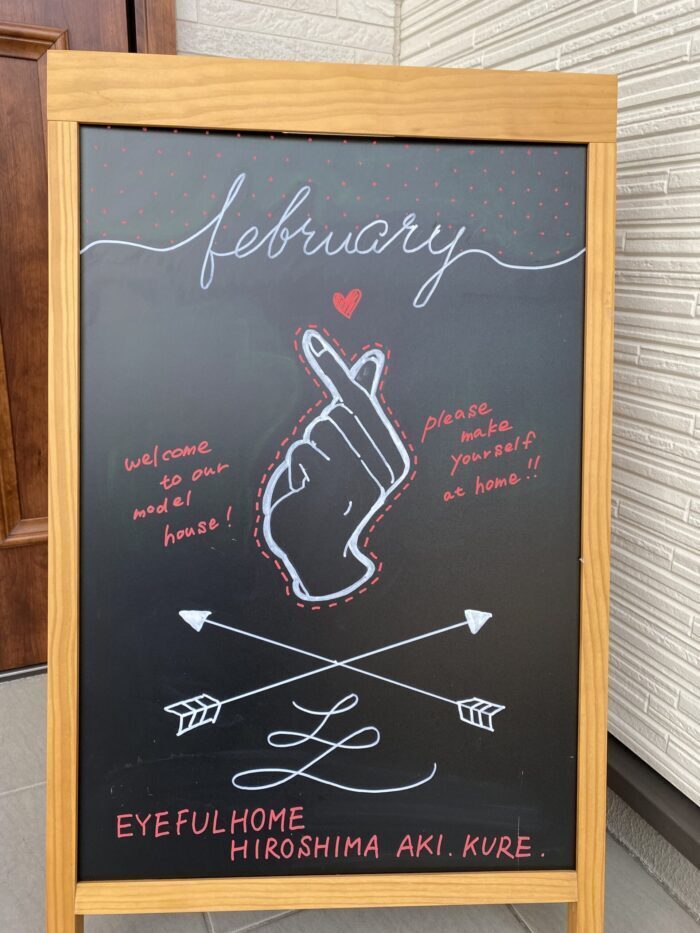 february
welcome
to our
model
house!
please
make
yourself
at home!!
EYEFULHOME
HIROSHIMA AKI. KURE.